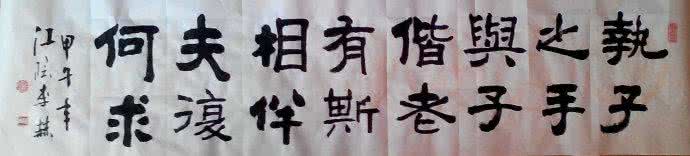 執子
之手
與子
偕老
有斯
相伴
夫復
何求
甲午年
江李